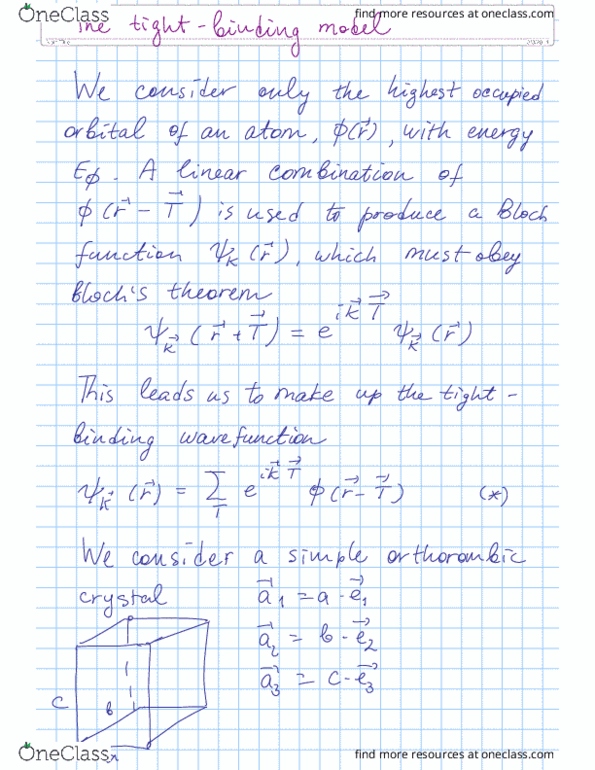 OneClass find more resources at oneclass.com
The tight-binding model
We consider only the highest occupied
orbital of an atom, ϕ(r⃗), with energy
Eϕ. A linear combination of
ϕ(r⃗ - T⃗) is used to produce a Bloch
function ψk⃗(r⃗), which must obey
Bloch's theorem
ψk⃗(r⃗ + T⃗) = e^{ik⃗T⃗} ψk⃗(r⃗)
This leads us to make up the tight-
binding wavefunction
ψk⃗(r⃗) = Σ_T e^{ik⃗T⃗} ϕ(r⃗ - T⃗) (*)
We consider a simple orthorombic
crystal a⃗1 = a·e⃗1
a⃗2 = b·e⃗2
a⃗3 = c·e⃗3
c
b
OneClass find more resources at oneclass.com